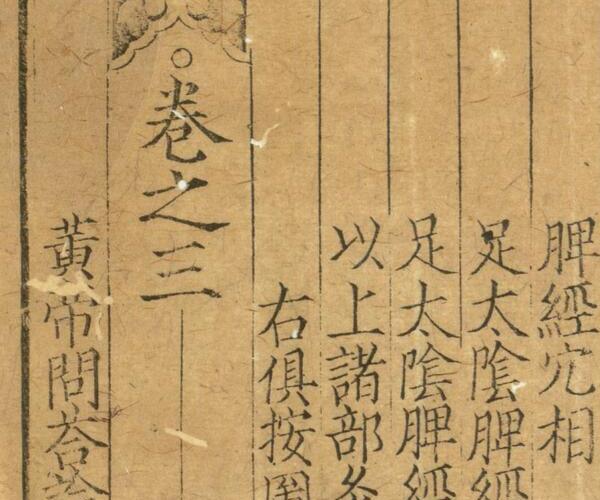 脾經穴相
足太陰脾經
足太陰脾經
以上諸部
右俱按圖
○卷之三
黃帝問荅